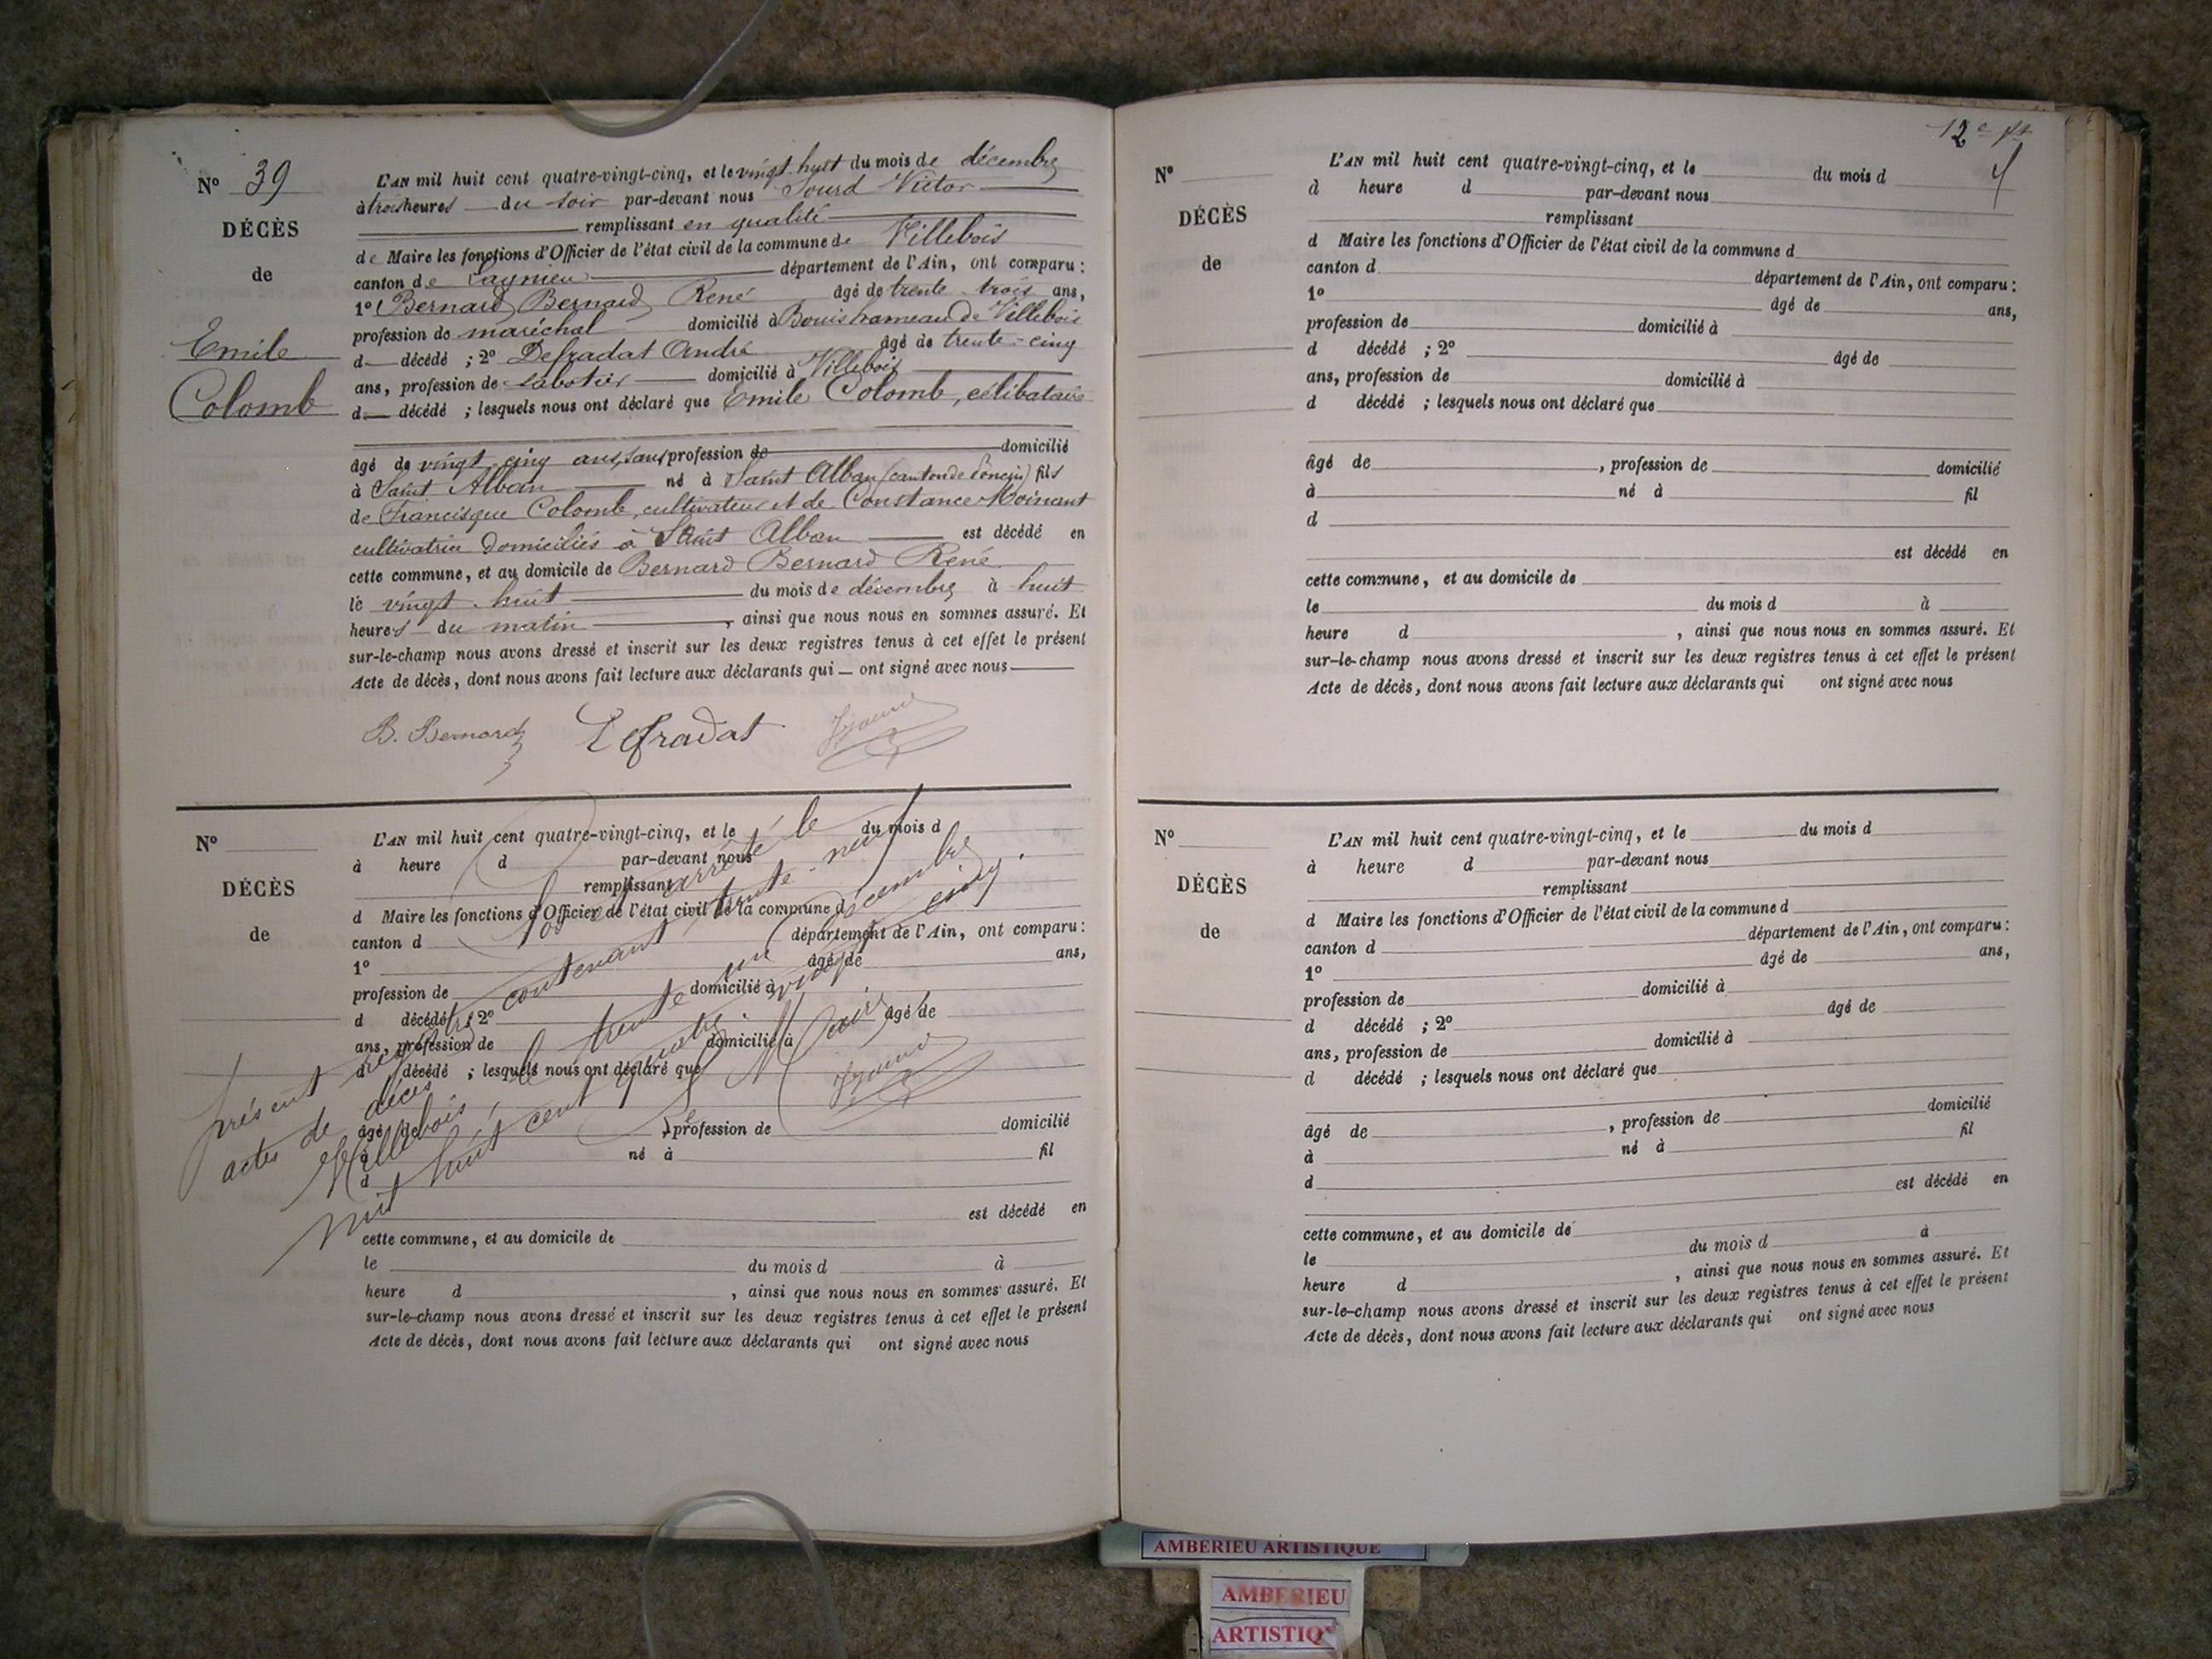 N° 39
DÉCÈS
de
Emile
Colomb
L'AN mil huit cent quatre-vingt-cinq, et le vingt-huit du mois de décembre
à trois heures du soir par-devant nous Jourd Victor
remplissant en qualité
de Maire les fonctions d'Officier de l'état civil de la commune de Villebois
canton de Lagnieu département de l'Ain, ont comparu :
1° Bernard Bernard René âgé de trente-trois ans,
profession de maréchal domicilié à Bouis hameau de Villebois
d décédé ; 2° Defradat André âgé de trente-cinq
ans, profession de sabotier domicilié à Villebois
d décédé ; lesquels nous ont déclaré que Emile Colomb, célibataire
âgé de vingt cinq ans, sans profession de domicilié
à Saint Alban né à Saint Alban (canton de Poncin) fils
de Francisque Colomb, cultivateur et de Constance Moinant
cultivatrice domiciliés à Saint Alban est décédé en
cette commune, et au domicile de Bernard Bernard René
le vingt-huit du mois de décembre à huit
heures du matin, ainsi que nous nous en sommes assuré. Et
sur-le-champ nous avons dressé et inscrit sur les deux registres tenus à cet effet le présent
Acte de décès, dont nous avons fait lecture aux déclarants qui ont signé avec nous
B. Bernard Defradat
N°
DÉCÈS
de
L'AN mil huit cent quatre-vingt-cinq, et le du mois d
à heure d par-devant nous
remplissant
d Maire les fonctions d'Officier de l'état civil de la commune d
canton d département de l'Ain, ont comparu :
1° âgé de ans,
profession de domicilié à
d décédé ; 2° âgé de
ans, profession de domicilié à
d décédé ; lesquels nous ont déclaré que
âgé de , profession de domicilié
à né à fil
d
est décédé en
cette commune, et au domicile de
le du mois d à
heure d , ainsi que nous nous en sommes assuré. Et
sur-le-champ nous avons dressé et inscrit sur les deux registres tenus à cet effet le présent
Acte de décès, dont nous avons fait lecture aux déclarants qui ont signé avec nous
Clos et arrêté le
présent registre contenant trente-neuf
actes de décès
Villebois, le trente un décembre
mil huit cent quatre-vingt-cinq.
Le Maire
12e ft
N°
DÉCÈS
de
L'AN mil huit cent quatre-vingt-cinq, et le du mois d
à heure d par-devant nous
remplissant
d Maire les fonctions d'Officier de l'état civil de la commune d
canton d département de l'Ain, ont comparu :
1° âgé de ans,
profession de domicilié à
d décédé ; 2° âgé de
ans, profession de domicilié à
d décédé ; lesquels nous ont déclaré que
âgé de , profession de domicilié
à né à fil
d
est décédé en
cette commune, et au domicile de
le du mois d à
heure d , ainsi que nous nous en sommes assuré. Et
sur-le-champ nous avons dressé et inscrit sur les deux registres tenus à cet effet le présent
Acte de décès, dont nous avons fait lecture aux déclarants qui ont signé avec nous
N°
DÉCÈS
de
L'AN mil huit cent quatre-vingt-cinq, et le du mois d
à heure d par-devant nous
remplissant
d Maire les fonctions d'Officier de l'état civil de la commune d
canton d département de l'Ain, ont comparu :
1° âgé de ans,
profession de domicilié à
d décédé ; 2° âgé de
ans, profession de domicilié à
d décédé ; lesquels nous ont déclaré que
âgé de , profession de domicilié
à né à fil
d
est décédé en
cette commune, et au domicile de
le du mois d à
heure d , ainsi que nous nous en sommes assuré. Et
sur-le-champ nous avons dressé et inscrit sur les deux registres tenus à cet effet le présent
Acte de décès, dont nous avons fait lecture aux déclarants qui ont signé avec nous
AMBERIEU ARTISTIQUE
AMBERIEU
ARTISTIQ